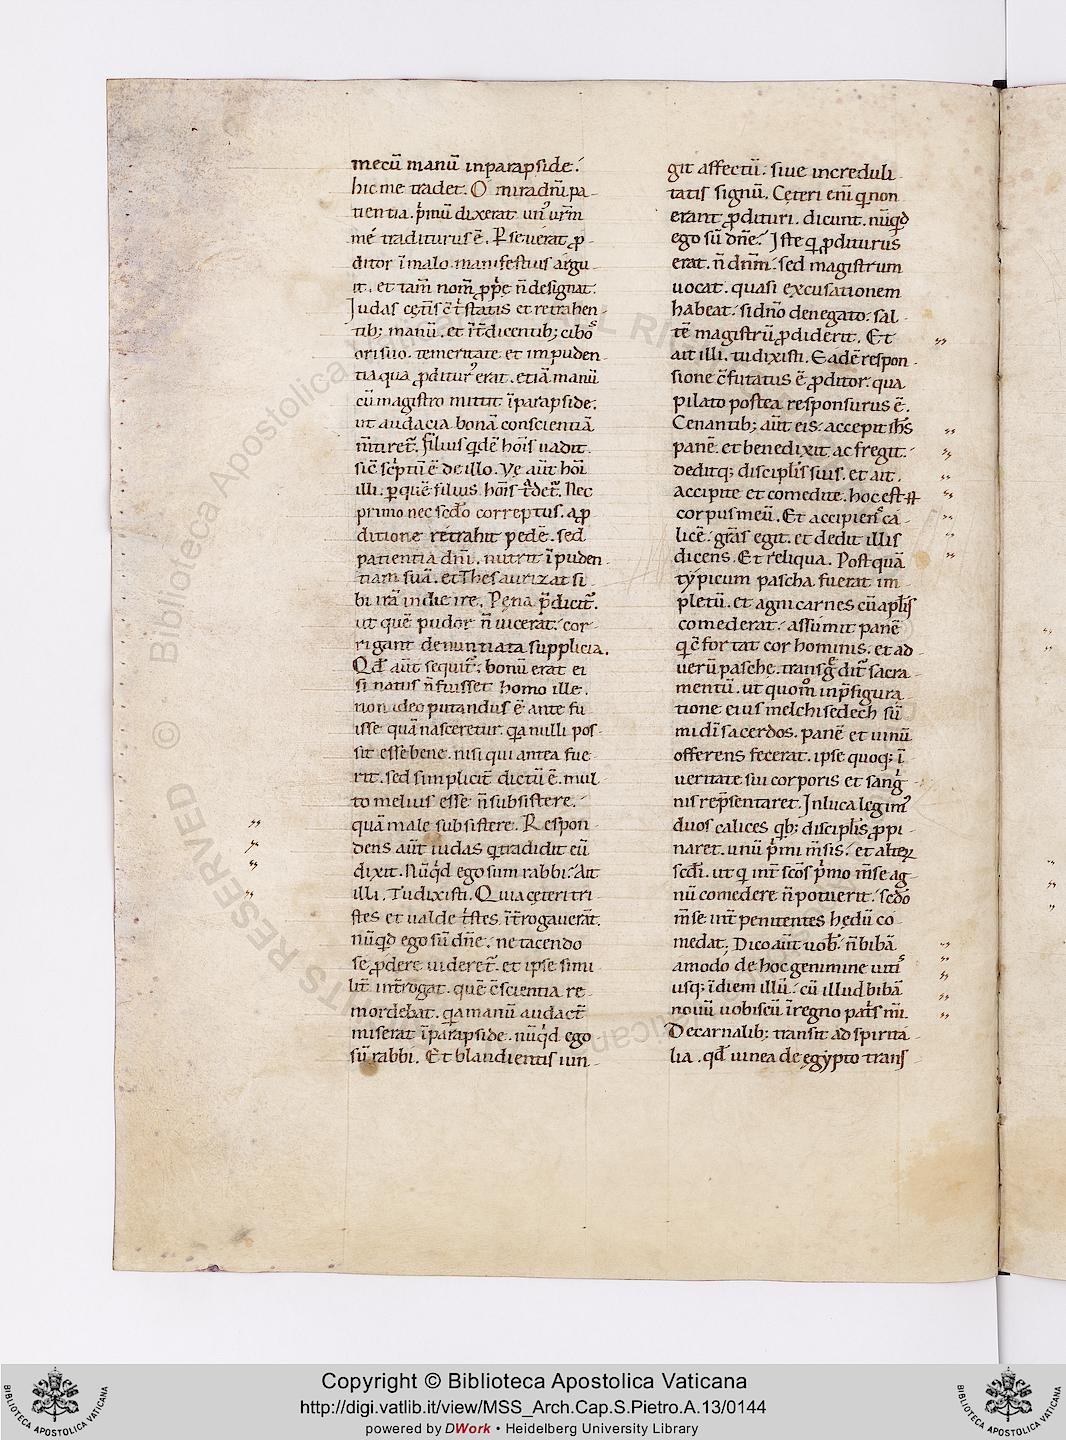 mecū manū inparapside.
hic me tradet. O mira dn̄i pa-
tientia. p̄mū dixerat. un' vr̄m
me traditurus ē. Pseuerat p̱-
ditor ī malo. manifestius argu-
it. et tam̄ nom̄ p̱pe n̄ designat.
Judas cęt̄is c̄t̄statis et retrahen-
tib; manū. et īt̄dicentib; cibō
ori suo. temeritate et impuden-
tia qua p̱ditur' erat. etiā manū
cū magistro mittit īparapside.
ut audacia bonā conscientiā
m̄tiret̄. Filius q̄dē hōis uadit.
sic̄ sc̄ptū ē de illo. Vę aūt hōi
illi. p̱ quē filius hōis t̄det̄. Nec
primo nec sedō correptus. ap̱
ditione retrahit pedē. sed
patientia dn̄i. nutrit īpuden-
tiam suā. et thesaurizat si-
bi irā in die irę. Pęna p̄dicit̄.
ut quē pudor n̄ uicerat. cor-
rigant denuntiata supplicia.
Qđ aūt sequit̄. bonū erat ei
si natus n̄ fuisset homo ille.
non ideo putandus ē ante fu-
isse quā nasceretur. q̄a nulli pos-
sit esse bene. nisi qui antea fue-
rit. sed simplicit̄ dictū ē. mul-
to melius esse n̄ subsistere.
quā male subsistere. Respon-
dens aūt iudas q̄ tradidit eū
dixit. Nūq̄d ego sum rabbi. Ait
illi. Tu dixisti. Quia cęteri tri-
stes et ualde t̄stes īt̄rogauerāt.
nūq̄d ego sū dn̄e. ne tacendo
se p̱dere uideret̄. et ipse simi-
lit̄ int̄rogat. quē c̄scientia re-
mordebat. q̄a manū audact̄
miserat īparapside. nūq̄d ego
sū rabbi. Et blandientis iun-
git affectū. siue increduli-
tatis signū. Cęteri eni q̄ non
erant p̱dituri. dicunt. nūq̄d
ego sū dn̄e. Iste q̄ p̱diturus
erat. n̄ dn̄m. sed magistrum
uocat. quasi excusationem
habeat. si dn̄o denegato. sal-
tē magistrū p̱diderit. Et
ait illi. tu dixisti. Eadē respon-
sione c̄futatus ē p̱ditor. qua
pilato postea responsurus ē.
Cenantib; aūt eis. accepit ih̄s
panē. et benedixit ac fregit.
deditq; discipl̄is suis. et ait.
accipite et comedite. hoc est
corpus meū. Et accipiens ca-
licē. gr̄as egit. et dedit illis
dicens. Et reliqua. Postquā
typicum pascha fuerat im-
pletū. et agni carnes cū apl̄is
comederat. assumit panē
q̄ c̄fortat cor hominis. et ad
uerū paschę. transgr̄dit̄ sacra-
mentū. ut quom̄ in p̄figura-
tione eius melchisedech sū-
mi dī sacerdos. panē et uinū
offerens fecerat. ipse quoq; ī
ueritate sui corporis et sanḡ-
nis rep̄sentaret. In luca legim'
duos calices qb; discipl̄is p̱pi-
naret. unū p̄mi m̄sis. et alter̄
sedī. ut q̄ int̄ scōs p̄mo m̄se ag-
nū comedere n̄ potuerit. sedō
m̄se int̄ penitentes hędū co-
medat. Dico aūt uob̄. n̄ bibā
amodo de hoc genimine uitis
usq; ī diem illū. cū illud bibā
nouū uobiscū ī regno pat̄s m̄i.
De carnalib; transit ad spirita-
lia. qđ uinea de ęgypto trans
Copyright © Biblioteca Apostolica Vaticana
http://digi.vatlib.it/view/MSS_Arch.Cap.S.Pietro.A.13/0144
powered by DWork • Heidelberg University Library